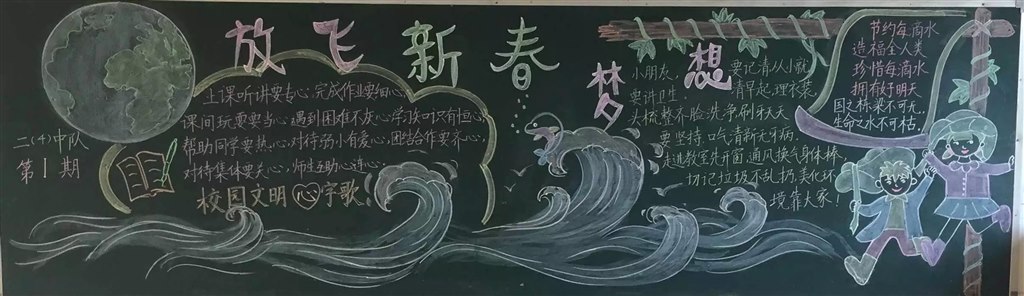 放飞新春梦想
二(4)中队
第1期
上课听讲要专心,完成作业要细心,
课间玩耍要当心,遇到困难不灰心,学习知识有恒心,
帮助同学要热心,对待弱小有爱心,团结合作要齐心,
对待集体要关心,师生互助心连心。
校园文明心字歌
小朋友,要记清,从小就
要讲卫生。清早起,理衣装,
头梳整齐脸洗净,刷牙天天
要坚持,口气清新无牙病,
走进教室先开窗,通风换气身体棒,
切记垃圾不乱扔,美化环
境靠大家!
节约每滴水
造福全人类
珍惜每滴水
拥有好明天
国之栋梁不可无,
生命之水不可枯